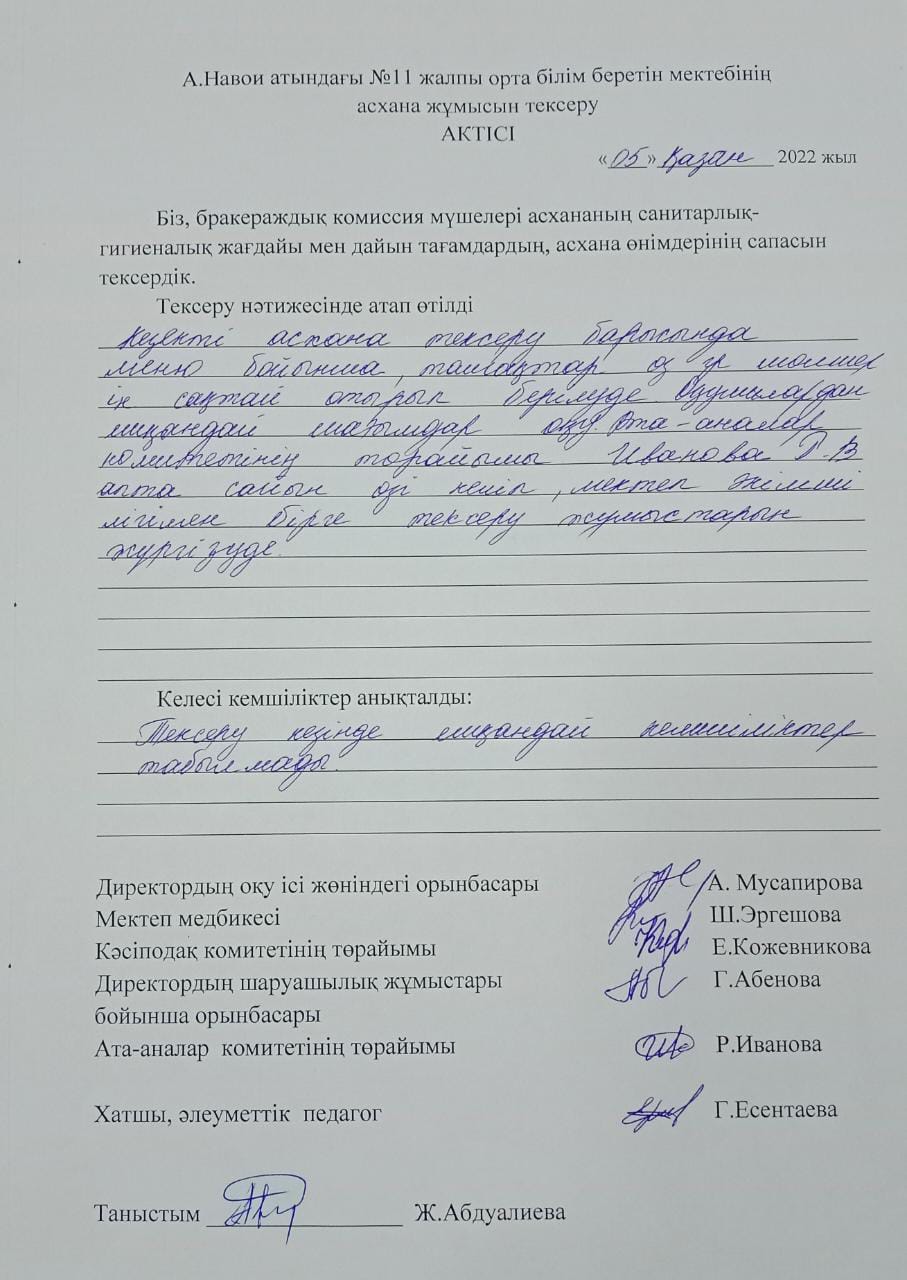 А.Навои атындағы №11 жалпы орта білім беретін мектебінің
асхана жұмысын тексеру
АКТІСІ
« 05 » Қазан 2022 жыл
Біз, бракераждық комиссия мүшелері асхананың санитарлық-
гигиеналық жағдайы мен дайын тағамдардың, асхана өнімдерінің сапасын
тексердік.
Тексеру нәтижесінде атап өтілді
Кезекті асхана тексеру барысында
меню бойынша, өз
ін сақтай отырып берілуде Оқушылардан
ешқандай шағымдар Ата-аналар
комитетінің төрайымы Иванова Р.В
апта сайын өзі келіп, мектеп әкімші
лігімен бірге тексеру жұмыстарын
жүргізуде.
Келесі кемшіліктер анықталды:
Тексеру кезінде ешқандай кемшіліктер
табылмады.
Директордың оқу ісі жөніндегі орынбасары А. Мусапирова
Мектеп медбикесі Ш.Эргешова
Кәсіподақ комитетінің төрайымы Е.Кожевникова
Директордың шаруашылық жұмыстары Г.Абенова
бойынша орынбасары
Ата-аналар комитетінің төрайымы Р.Иванова
Хатшы, әлеуметтік педагог Г.Есентаева
Таныстым Ж.Абдуалиева